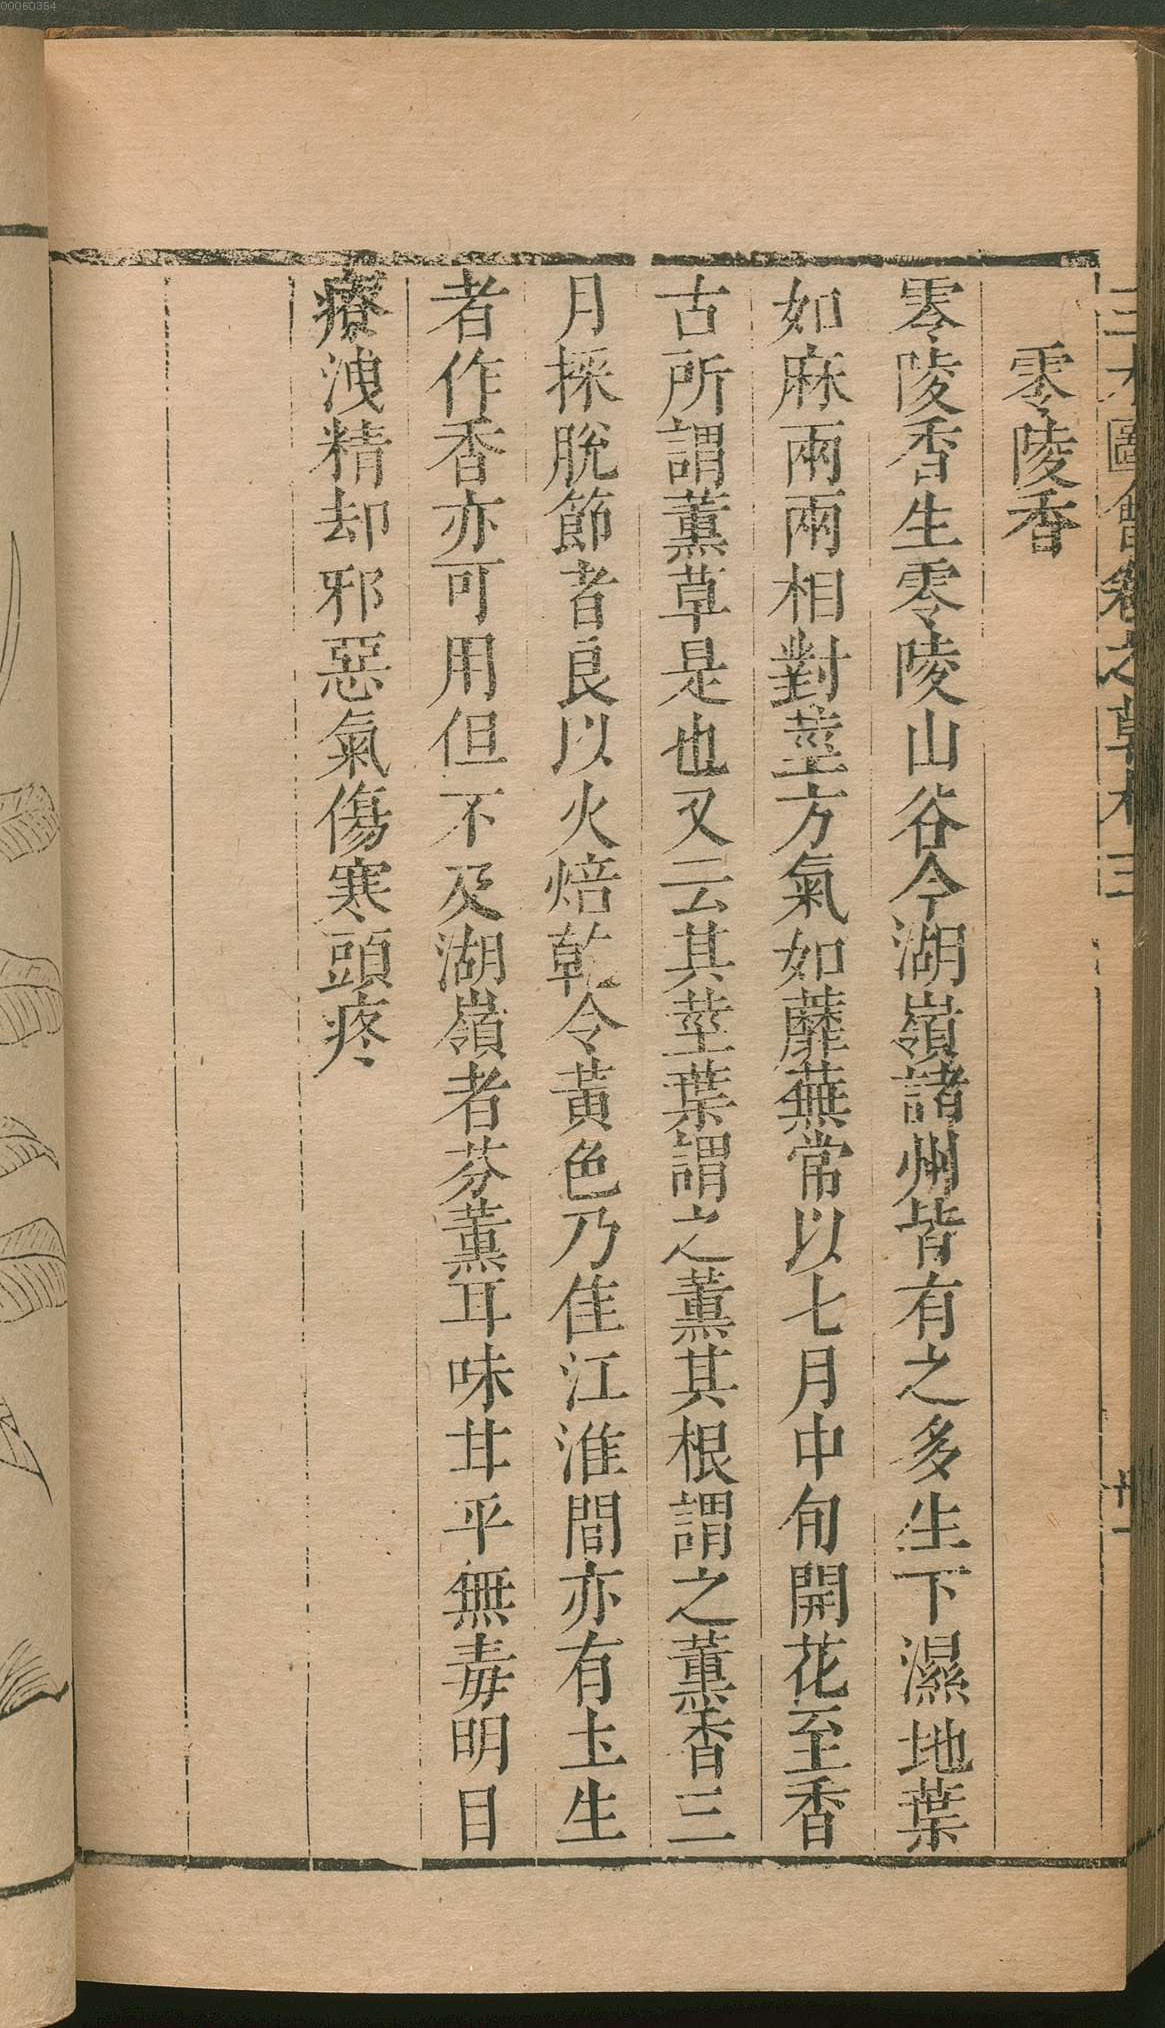 00060354
三才圖會卷之草木三
卅一
零陵香
零陵香生零陵山谷今湖嶺諸州皆有之多生下濕地葉
如麻兩兩相對莖方氣如蘼蕪常以七月中旬開花至香
古所謂薰草是也又云其莖葉謂之薰其根謂之薰香三
月採脫節者良以火焙乾令黃色乃佳江淮間亦有土生
者作香亦可用但不及湖嶺者芬薰耳味甘平無毒明目
療洩精却邪惡氣傷寒頭疼